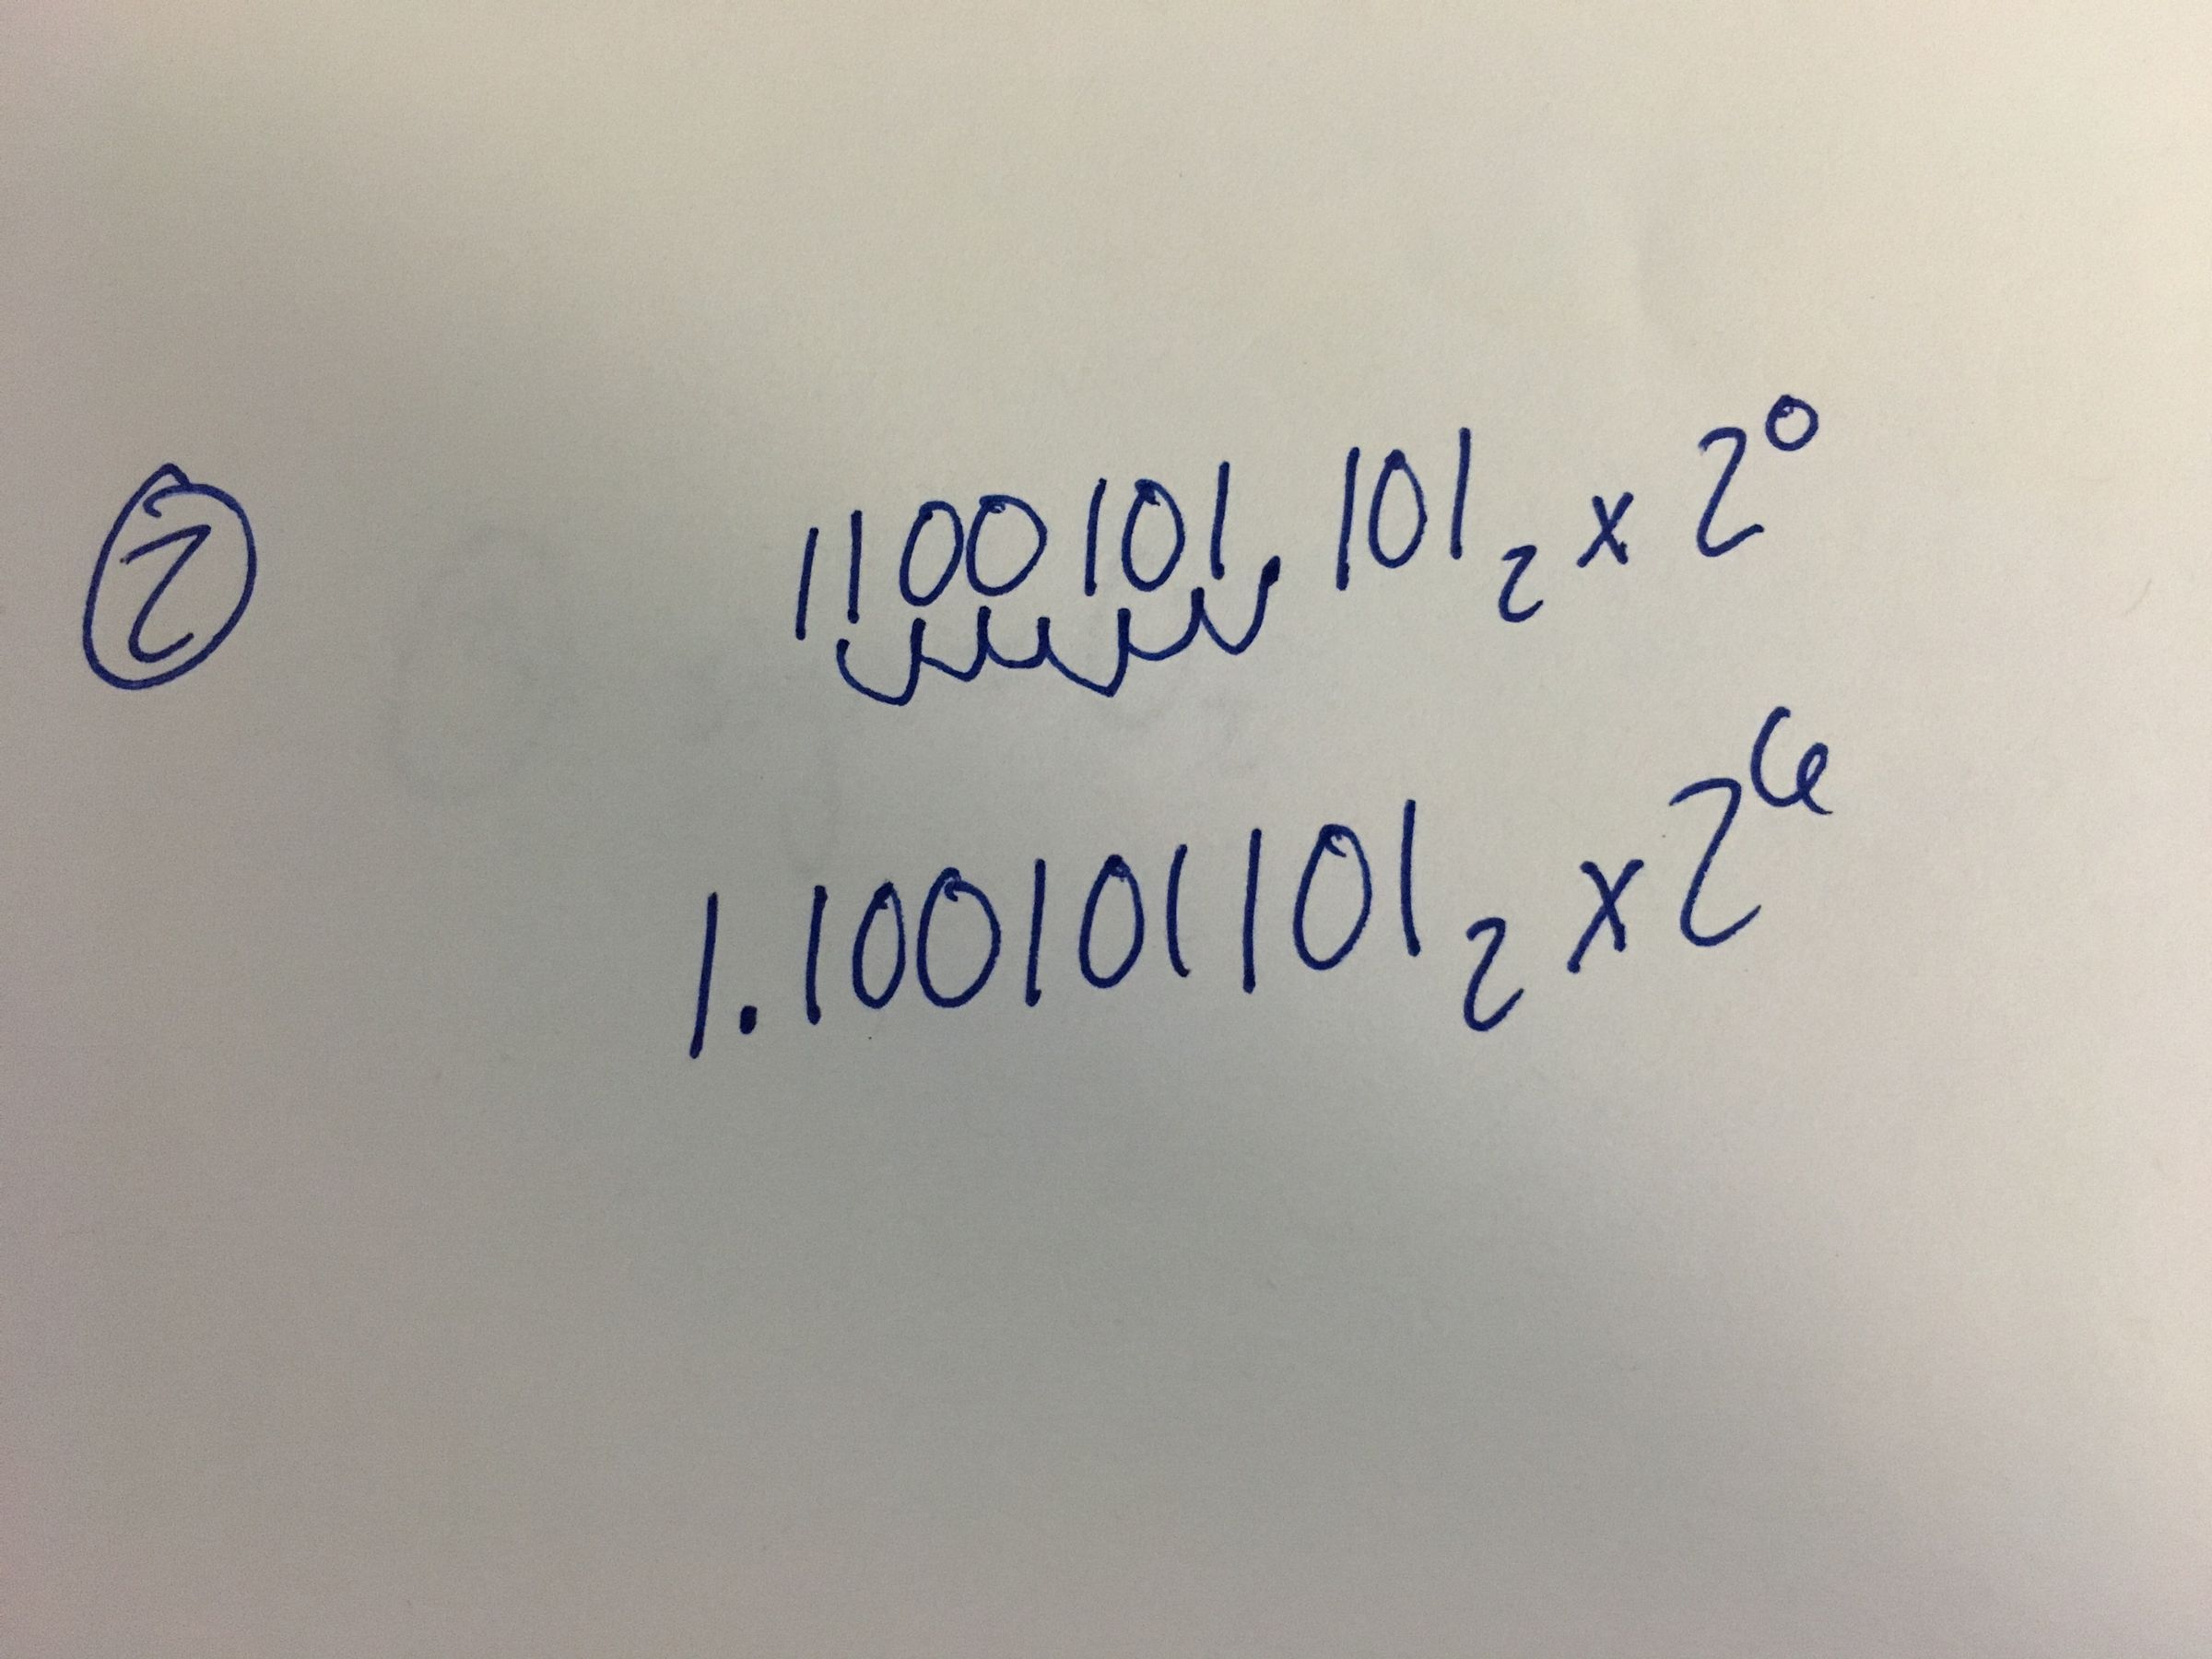 ② 1100101.101₂ x 2⁰
1.100101101₂ x 2⁶